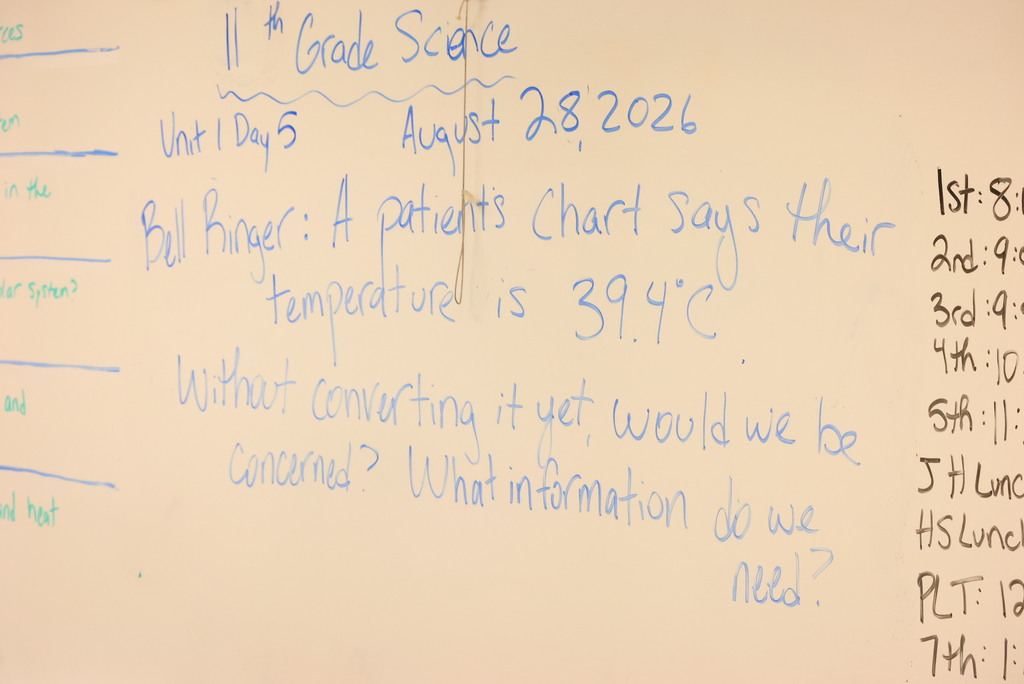 ces
em
in the
lar system?
and
and heat
11th Grade Science
Unit 1 Day 5 August 28, 2026
Bell Ringer: A patient's chart says their
temperature is 39.4°C.
Without converting it yet, would we be
concerned? What information do we
need?
1st: 8:
2nd: 9:
3rd: 9:
4th: 10
5th: 11:
JH Lunc
HS Lunch
PLT: 12
7th: 1: